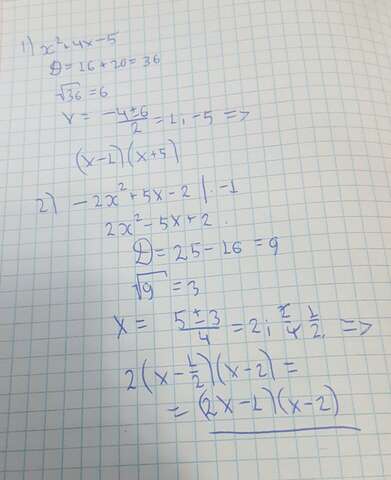 1) x²+4x-5
D=16+20=36
√36=6
x= -4±6/2 =1; -5 =>
(x-1)(x+5)
2) -2x²+5x-2 |·-1
2x²-5x+2.
D=25-16=9
√9=3
x= 5±3/4 =2; 2/4 1/2. =>
2(x-1/2)(x-2)=
=(2x-1)(x-2)